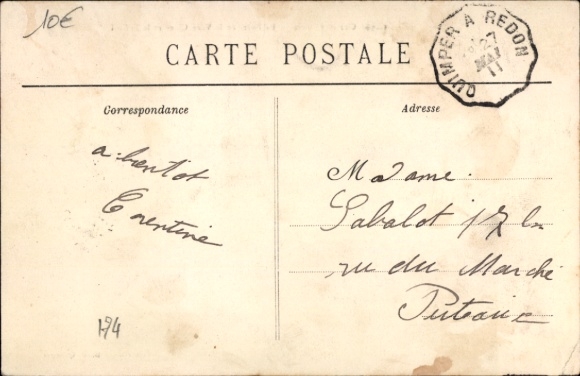 10€
CARTE POSTALE
QUIMPER A REDON
27
MAI
11
Correspondance
Adresse
a bientot
Corentine
Madame
Sabalot 17 bis
rue du Marché
Puteaux
174